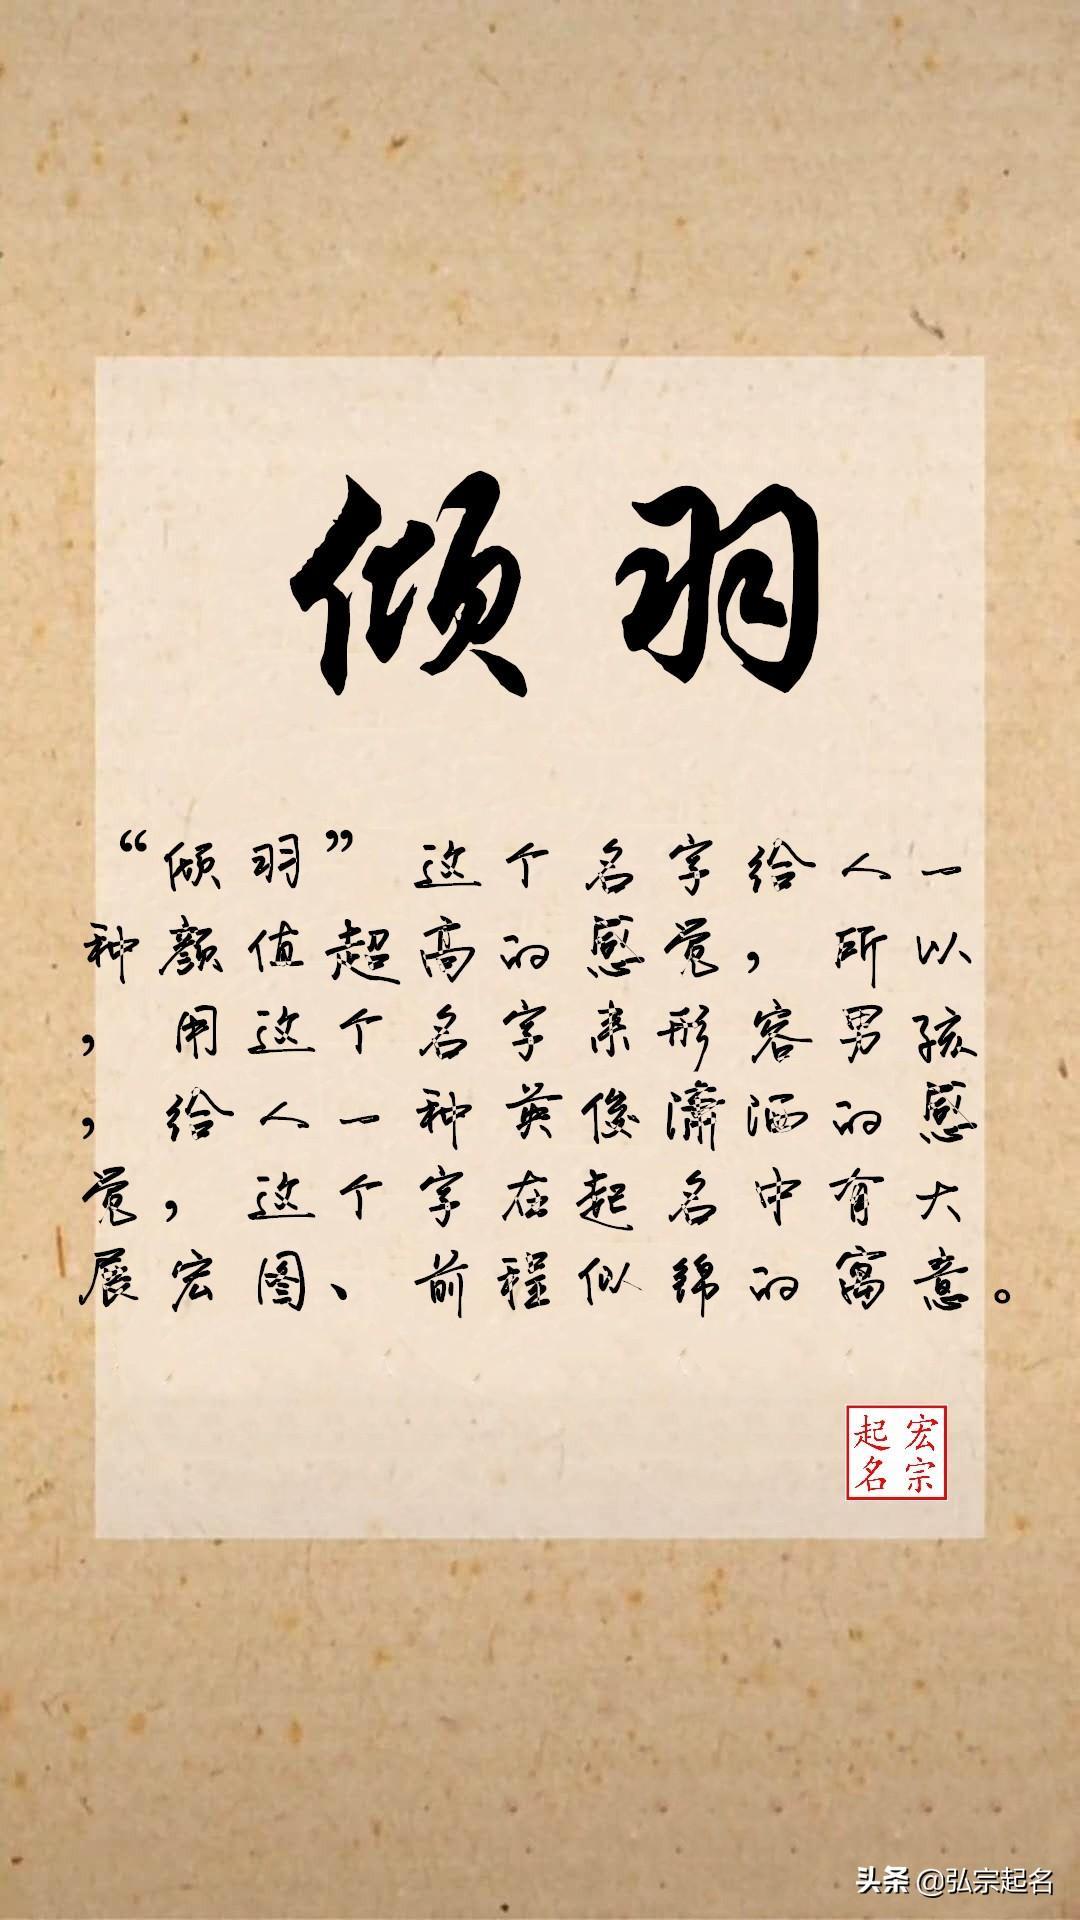 倾羽
“倾羽”这个名字给人一
种颜值超高的感觉，所以
，用这个名字来形容男孩
，给人一种英俊潇洒的感
觉，这个字在起名中有大
展宏图、前程似锦的寓意。
宏宗
起名
头条 @弘宗起名